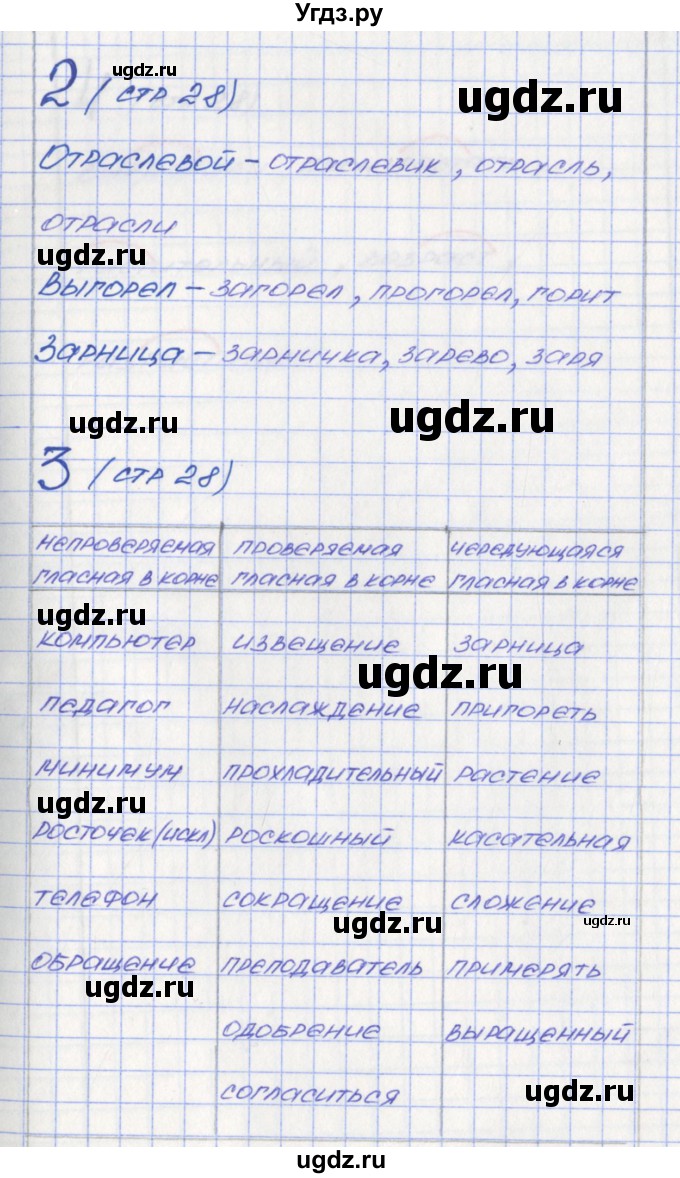 Угдз.ру
ugdz.ru
2 (стр 28)
ugdz.ru
Отраслевой – отраслевик, отрасль,
отрасли
ugdz.ru
Выгорел – загорел, прогорел, горит
Зарница – зарничка, зарево, заря
ugdz.ru
ugdz.ru
3 (стр 28)
непроверяемая проверяемая чередующаяся
гласная в корне гласная в корне гласная в корне
ugdz.ru
компьютер извещение зарница
ugdz.ru
педагог наслаждение пригореть
минимум прохладительный растение
ugdz.ru
росточек (искл) роскошный касательная
телефон сокращение сложение
ugdz.ru
ugdz.ru
обращение преподаватель примерять
ugdz.ru
одобрение выращенный
согласиться
ugdz.ru
ugdz.ru